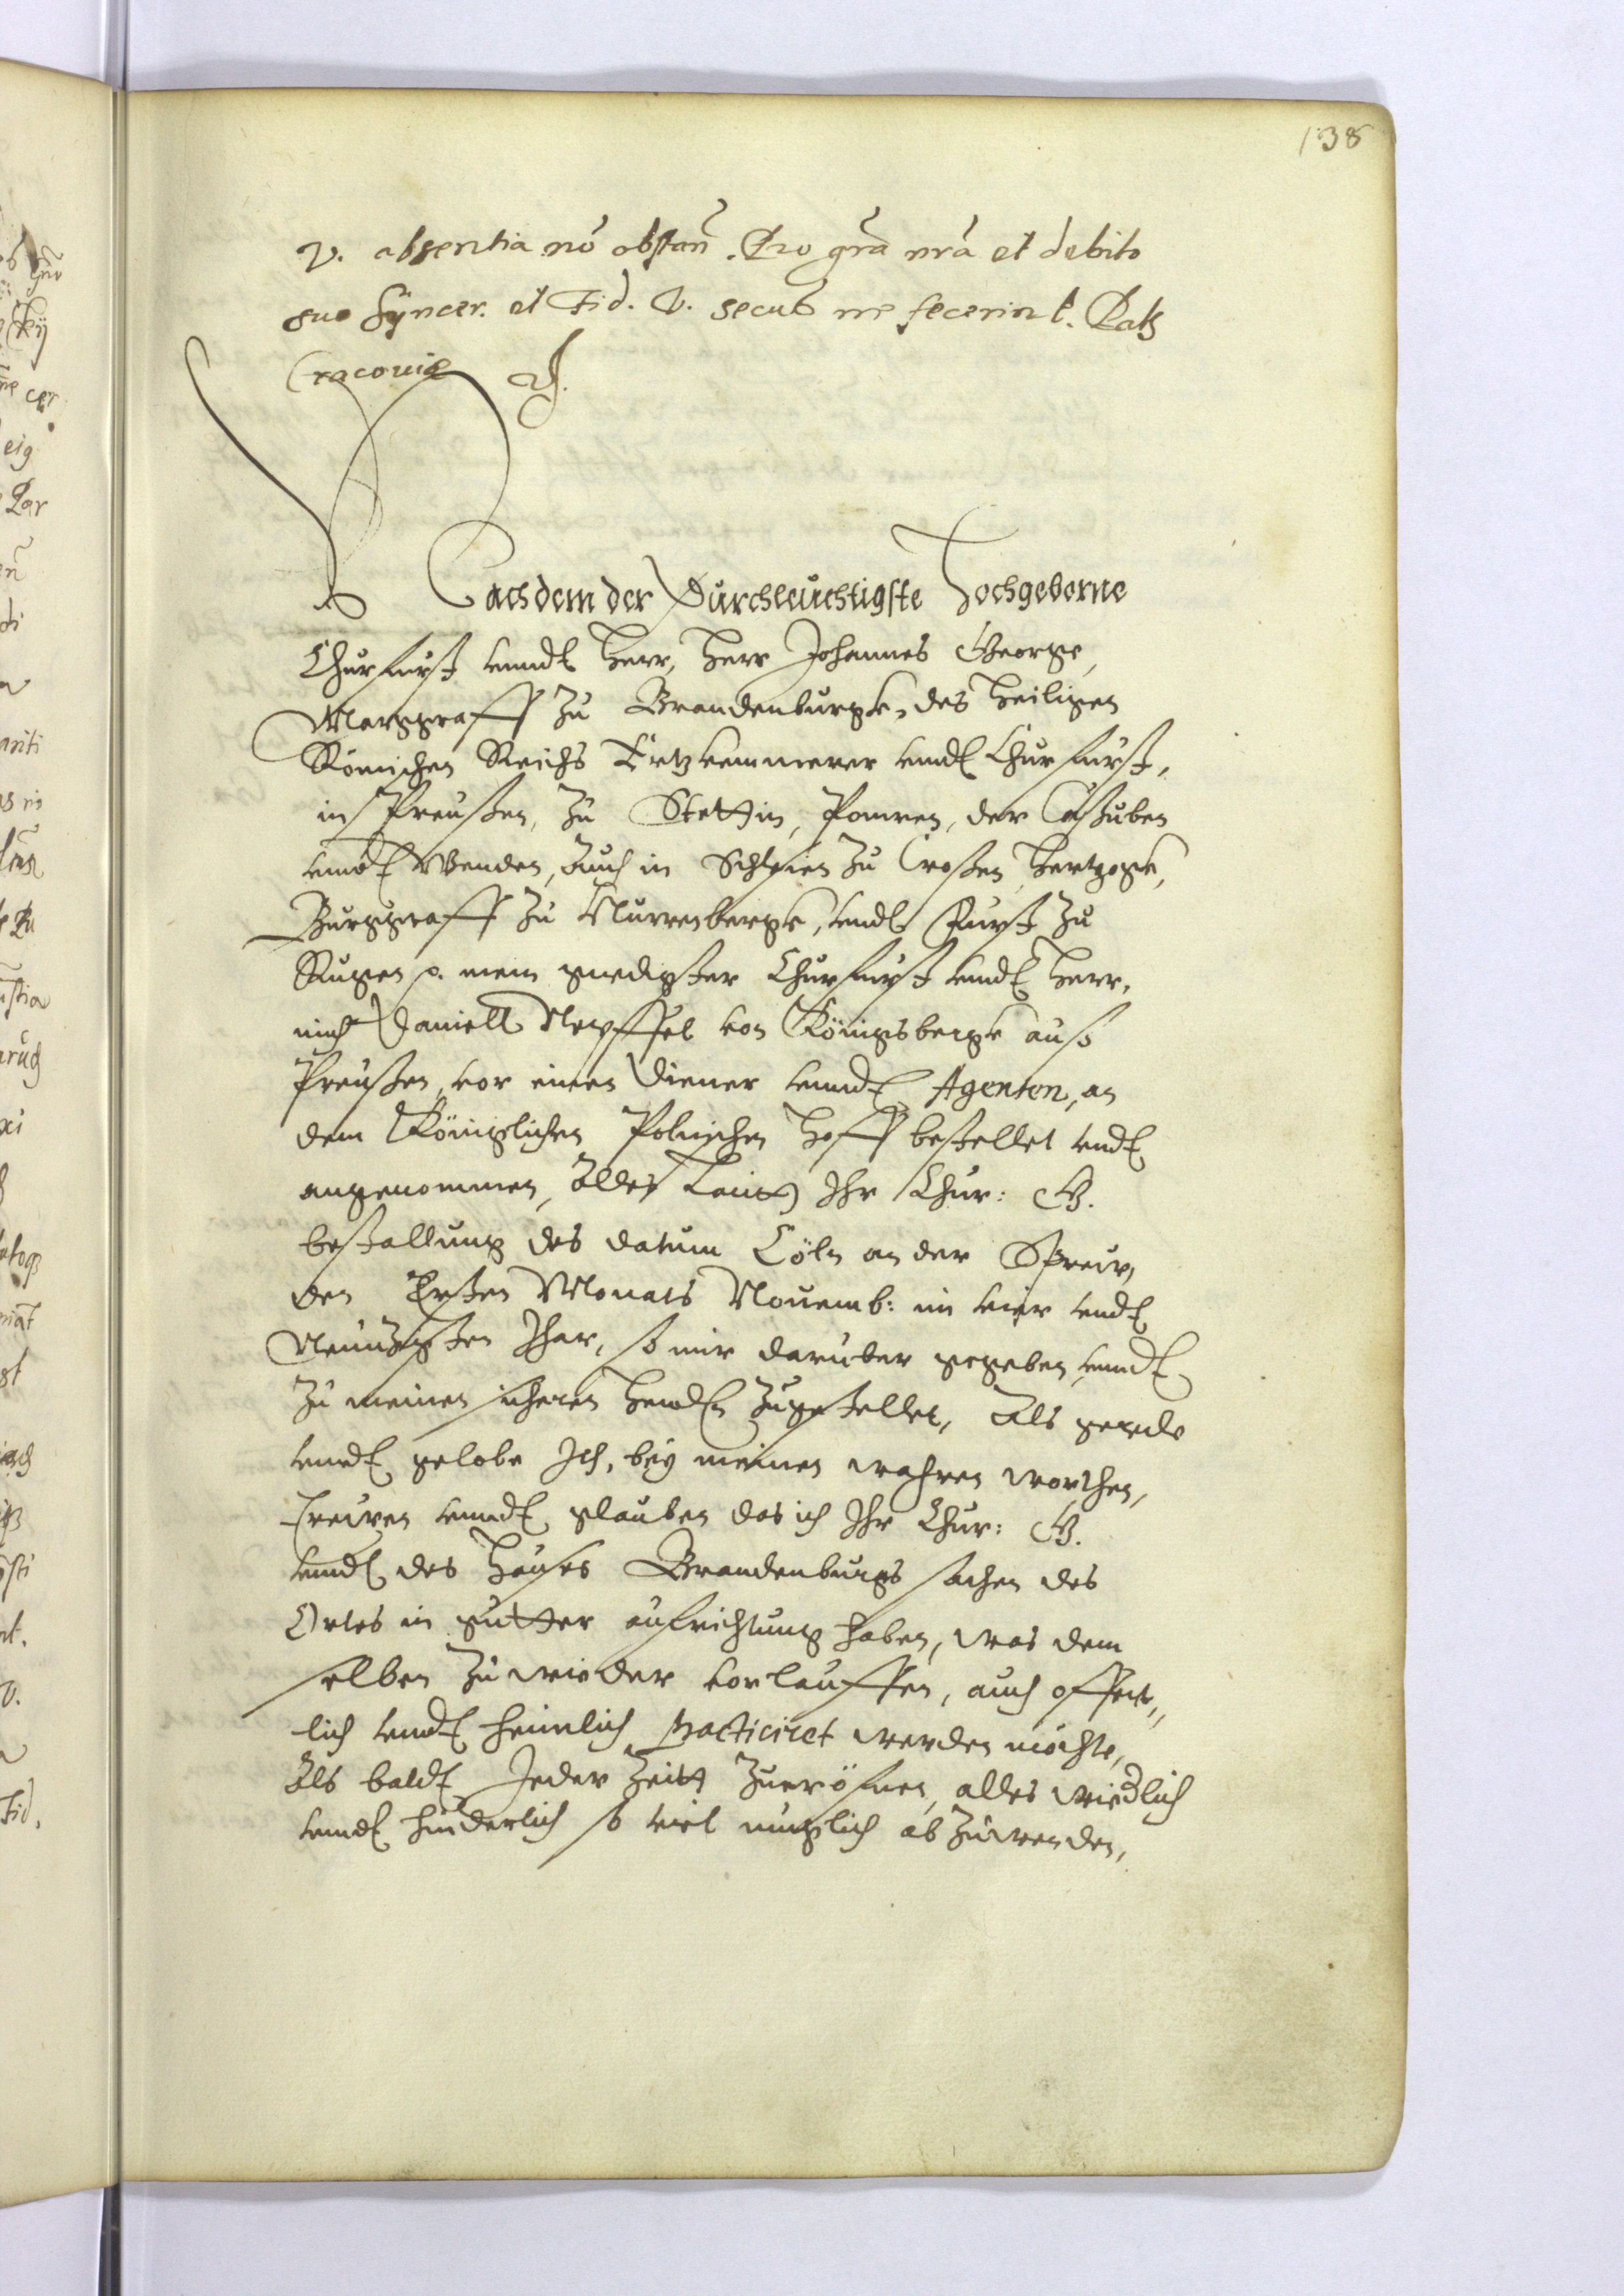 138
V. absentia nō obstan̄. Pro grā nrā et debito
suo Sÿncer. et Fid. V. secus ne fecerint. Datz
Cracouiæ
Nachdem der Durchleuchtigste Hochgeborne
Churfürst vnndt Herr, Herr Johannes George,
Marggraff zu Brandenburgk, des Heiligen
Römischen Reichs Ertzkemmerer vnndt Churfürst,
in Preußen, zu Stettin, Pomren, der Caßuben
vnndt Wenden, auch in Schlesien zu Croßen Hertzogk,
Burggraff zu Nurrenbergk, vnndt Fürst zu
Rugen p. mein gnedigster Churfürst vnndt Herr,
mich Daniell Nepffel von Königsbergk auß
Preußen, vor einen Diener vnndt Agenten, an
dem Königlichen Polnischen Hoff bestellet vndt
angenommen, alles Lautt Ihr Chur: G.
bestallung des datum Cöln an der Sprew,
den Ersten Monats Nouemb: im vier vndt
Neunzigsten Jhar, so mir daruber gegeben vnndt
zu meinen sicheren Henden zugestellet, Als gerede
vnndt gelobe Ich, beÿ meinen wahren worthen,
trewen vnndt glauben das ich Ihr Chur: G.
vnndt des Hauses Brandenburgs sachen des
Ortes in gutter aufrichtung haben, was dem
selben zu wieder vorlauffen, auch offent,,
lich vnndt heimlich practiciret werden möchte,
Als baldt Jeder Zeitt zueröfnen, alles wiedlich
vnndt hinderlich so viel muglich abzuwenden,